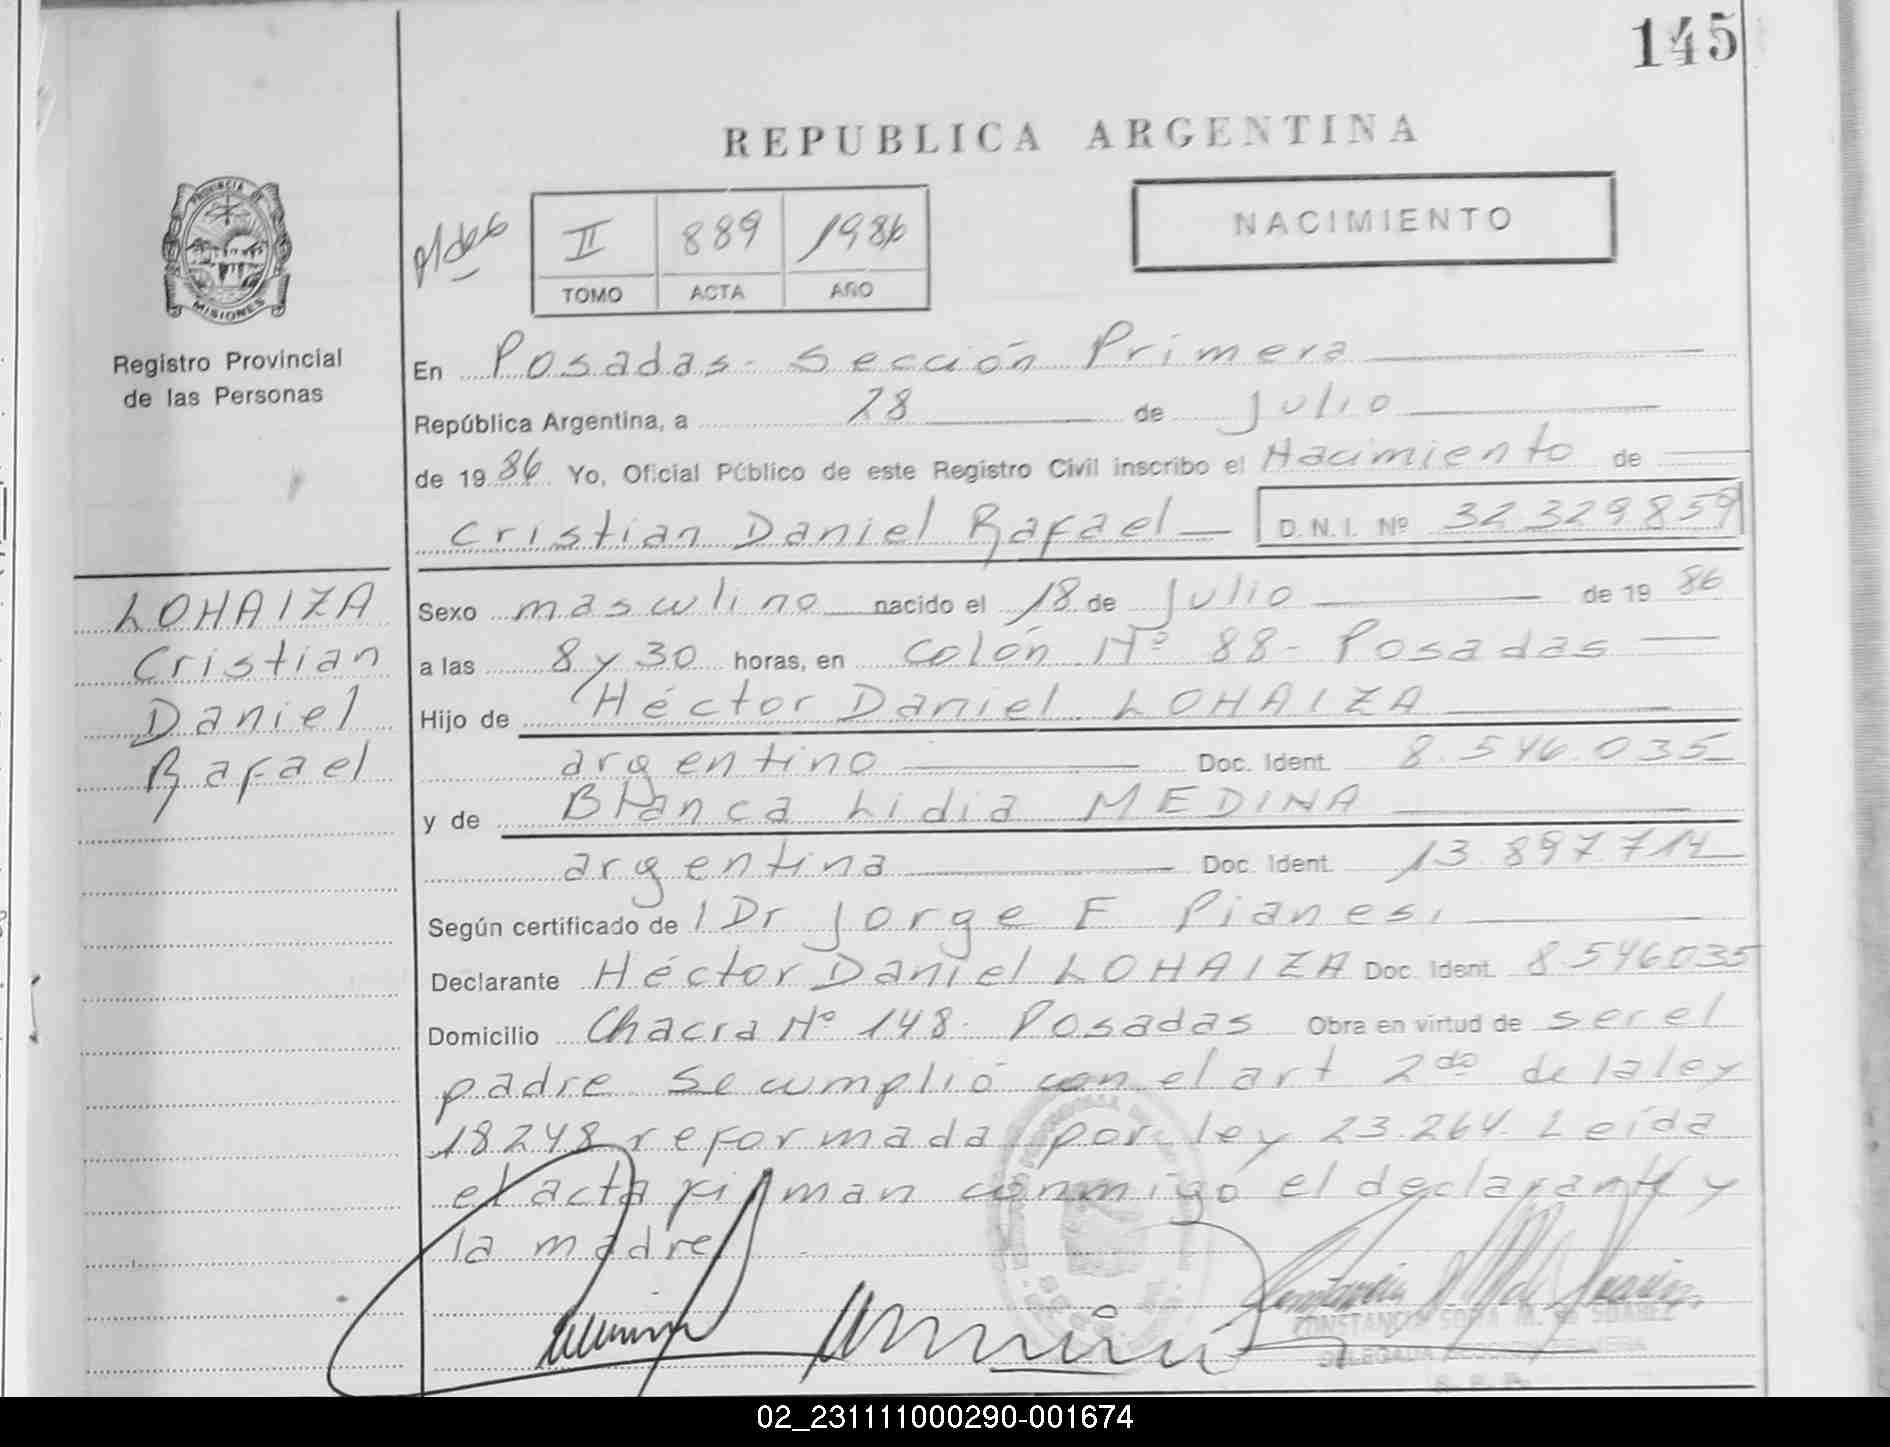 145
REPUBLICA ARGENTINA
NACIMIENTO
II 889 1986
TOMO ACTA AÑO
PROVINCIA DE MISIONES
Registro Provincial
de las Personas
En Posadas - Sección Primera
República Argentina, a 28 de Julio
de 19 86 Yo, Oficial Público de este Registro Civil inscribo el Nacimiento de
Cristian Daniel Rafael D.N.I. Nº 32329859
LOHAIZA
Cristian
Daniel
Rafael
Sexo masculino nacido el 18 de Julio de 19 86
a las 8 y 30 horas, en Colón Nº 88 - Posadas
Hijo de Héctor Daniel LOHAIZA
argentino Doc. Ident. 8.546.035
y de Blanca Lidia MEDINA
argentina Doc. Ident. 13.897.714
Según certificado de Dr Jorge E Pianesi
Declarante Héctor Daniel LOHAIZA Doc. Ident. 8546035
Domicilio Chacra Nº 148. Posadas Obra en virtud de ser el
padre Se cumplió con el art 2do de la ley
18248 reformada por ley 23.264. Leída
el acta firman conmigo el declarante y
la madre
CONSTANCIA SOFIA M. de SUAREZ
DELEGADA SECCION PRIMERA
02_231111000290-001674